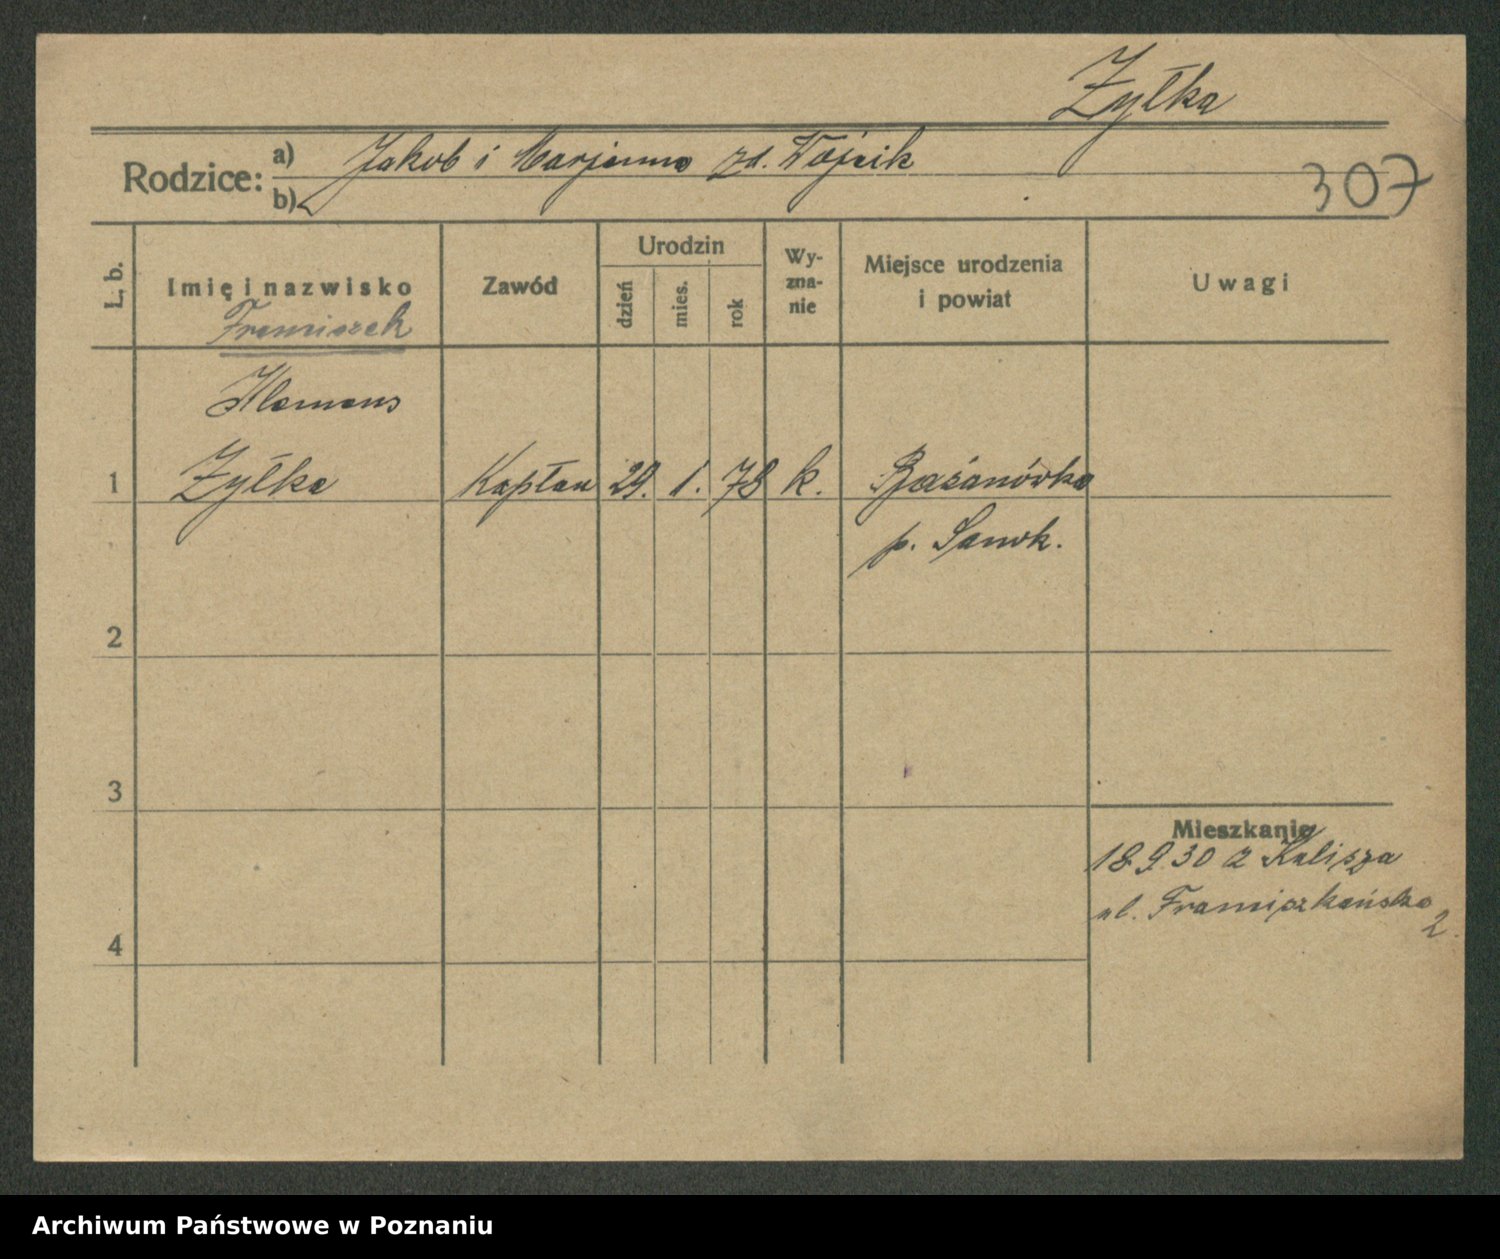 Żyłka
Rodzice:
a) Jakob i Marjanna zd. Wójcik
b)
307
L. b.
Imię i nazwisko
Zawód
Urodzin
dzień
mies.
rok
Wy-
zna-
nie
Miejsce urodzenia
i powiat
Uwagi
Franciszek
Klemens
1 Żyłka Kapłan 29. 1. 78 k. Bażanówka
p. Sanok.
2
3
Mieszkanie
18.9.30 z Kalisza
ul. Franciszkańska
2.
4
Archiwum Państwowe w Poznaniu